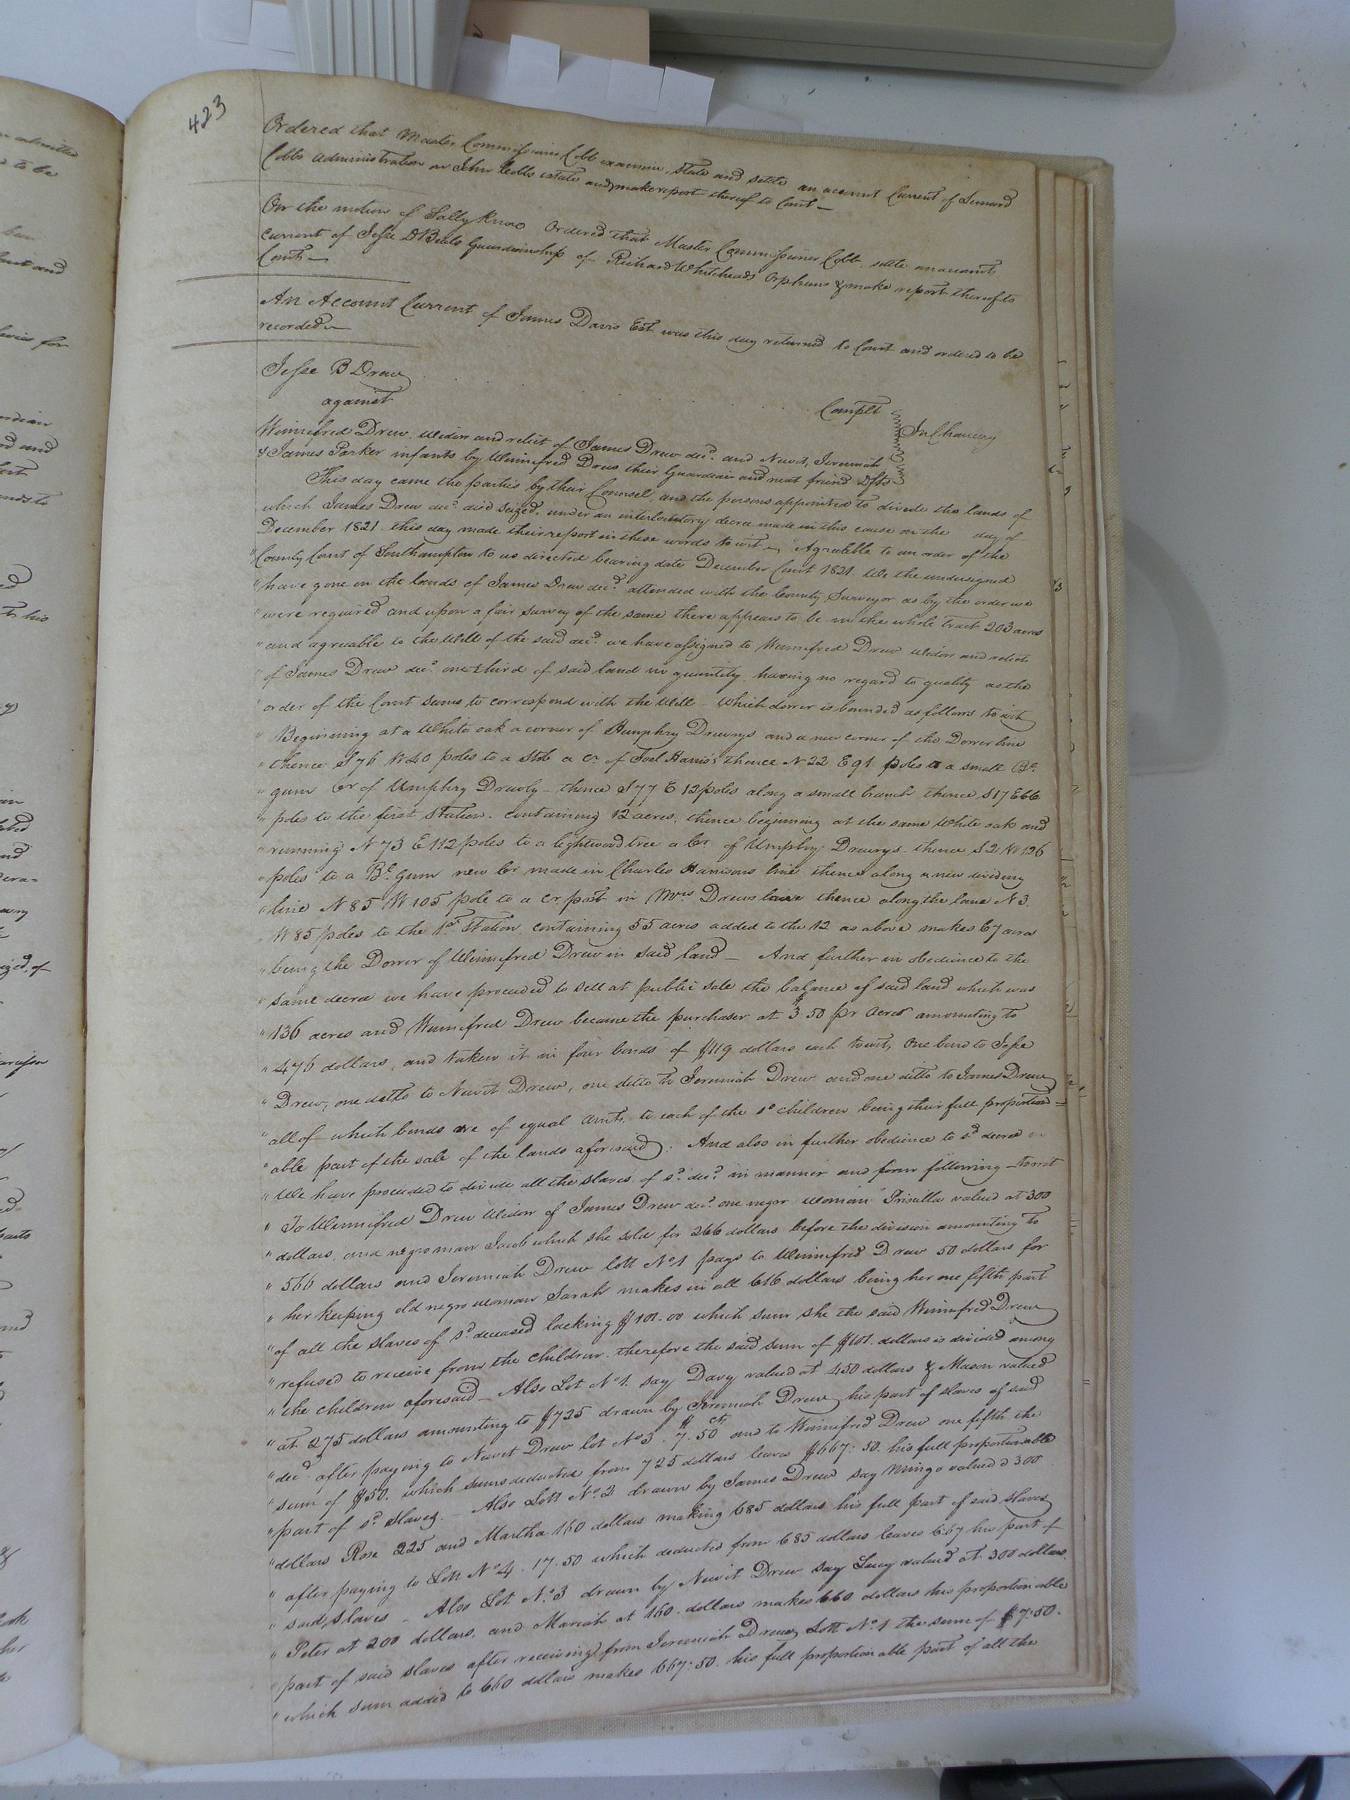 423
Ordered that Master Commissioner Cobb examine, State and settle an account Current of Lemuel
Cobbs administration on John Cobbs estate and make report thereof to Court —
On the motion of Sally Knox Ordered that Master Commissioner Cobb settle an account
current of Jesse D Beals Guardianship of Richard Whiteheads Orphans & make report thereof to
Court —
An Account Current of James Davis Est. was this day returned to Court and ordered to be
recorded —
Jesse B Drew
Complt
against
In Chancery
Winnifred Drew, widow and relict of James Drew decd. and Newit, Jeremiah
& James Parker infants by Winnifred Drew their Guardian and next friend Dfts
This day came the parties by their Counsel, and the persons appointed to divide the lands of
which James Drew decd. died seized, under an interlocutory decree made in this cause on the day of
December 1821. this day made their report in these words to wit — "Agreeable to an order of the
"County Court of Southampton to us directed bearing date December Court 1821. We the undersigned
"have gone on the lands of James Drew decd. attended with the County Surveyor as by the order we
"were required and upon a fair survey of the same there appears to be in the whole tract 203 acres
"and agreeable to the Will of the said decd. we have assigned to Winnifred Drew widow and relict
"of James Drew decd. one third of said land in quantity, having no regard to quality as the
"order of the Court seems to correspond with the Will — Which dower is bounded as follows to wit
" Beginning at a White oak a corner of Humphry Drewrys and a new corner of the Dower line
"thence S 76 W 40 poles to a Stob a Cr. of Joel Harris's thence N 22 E 91 poles to a small Be.
"gum Cr of Umphry Drewry — thence S 77 E 12 poles along a small branch thence S 17 E 66
"poles to the first Station. containing 12 acres, thence beginning at the same White oak and
"running N 73 E 112 poles to a lightwood tree a Cr. of Umphry Drewrys thence S 2 W 126
"poles to a Be. gum new Cr made in Charles Harrisons line thence along a new dividing
"line N 85 W 105 pole to a Cr post in Mrs Drews lane thence along the lane N 3.
"W 85 poles to the 1st Station containing 55 acres added to the 12 as above makes 67 acres
"being the Dower of Winnifred Drew in said land — And further in obedience to the
"same decree we have proceeded to sell at public sale the balance of said land which was
"136 acres and Winnifred Drew became the purchaser at $3 50 pr acre amounting to
"476 dollars, and taken it in four bonds of $119 dollars each to wit, One bond to Jesse
"Drew, one ditto to Newit Drew, one ditto to Jeremiah Drew and one ditto to James Drew
"all of which bonds are of equal amts. to each of the sd children being their full proportion=
"able part of the sale of the lands aforesaid. And also in further obedience to sd decree
"We have proceeded to divide all the slaves of sd. decd. in manner and form following — to wit
" To Winnifred Drew Widow of James Drew decd. one negro woman Prisulla valued at 300
"dollars, and negro man Jacob which she sold for 266 dollars before the division amounting to
"566 dollars and Jeremiah Drew lott No 1 pays to Winnifred Drew 50 dollars for
"her keeping old negro woman Sarah makes in all 616 dollars being her one fifth part
"of all the slaves of sd. deceased lacking $101.00 which sum she the said Winnifred Drew
"refused to receive from the children. therefore the said sum of $101. dollars is divided among
"the children aforesaid — Also Lot No 1. say Davy valued at 450 dollars & Mason valued
"at 275 dollars amounting to $725 drawn by Jeremiah Drew, his part of slaves of said
"decd. after paying to Newit Drew lot No 3. $7.50 cts and to Winnifred Drew one fifth the
"sum of $50. which sums deducted from 725 dollars leaves $667.50. his full proportionable
"part of sd. slaves. — Also Lott No. 2 drawn by James Drew say Mingo valued a 300
"dollars Rose 225 and Martha 160 dollars making 685 dollars his full part of said slaves
"after paying to Lott No 4. 17.50 which deducted from 685 dollars leaves 667 his part of
"said slaves — Also Lot No. 3 drawn by Newit Drew say Lucy valued at 300 dollars
"Peter at 200 dollars, and Mariah at 160. dollars makes 660 dollars his proportionable
"part of said slaves after receiving from Jeremiah Drew, Lott No 1 the sum of $7.50.
"which sum added to 660 dollars makes 667.50. his full proportionable part of all the